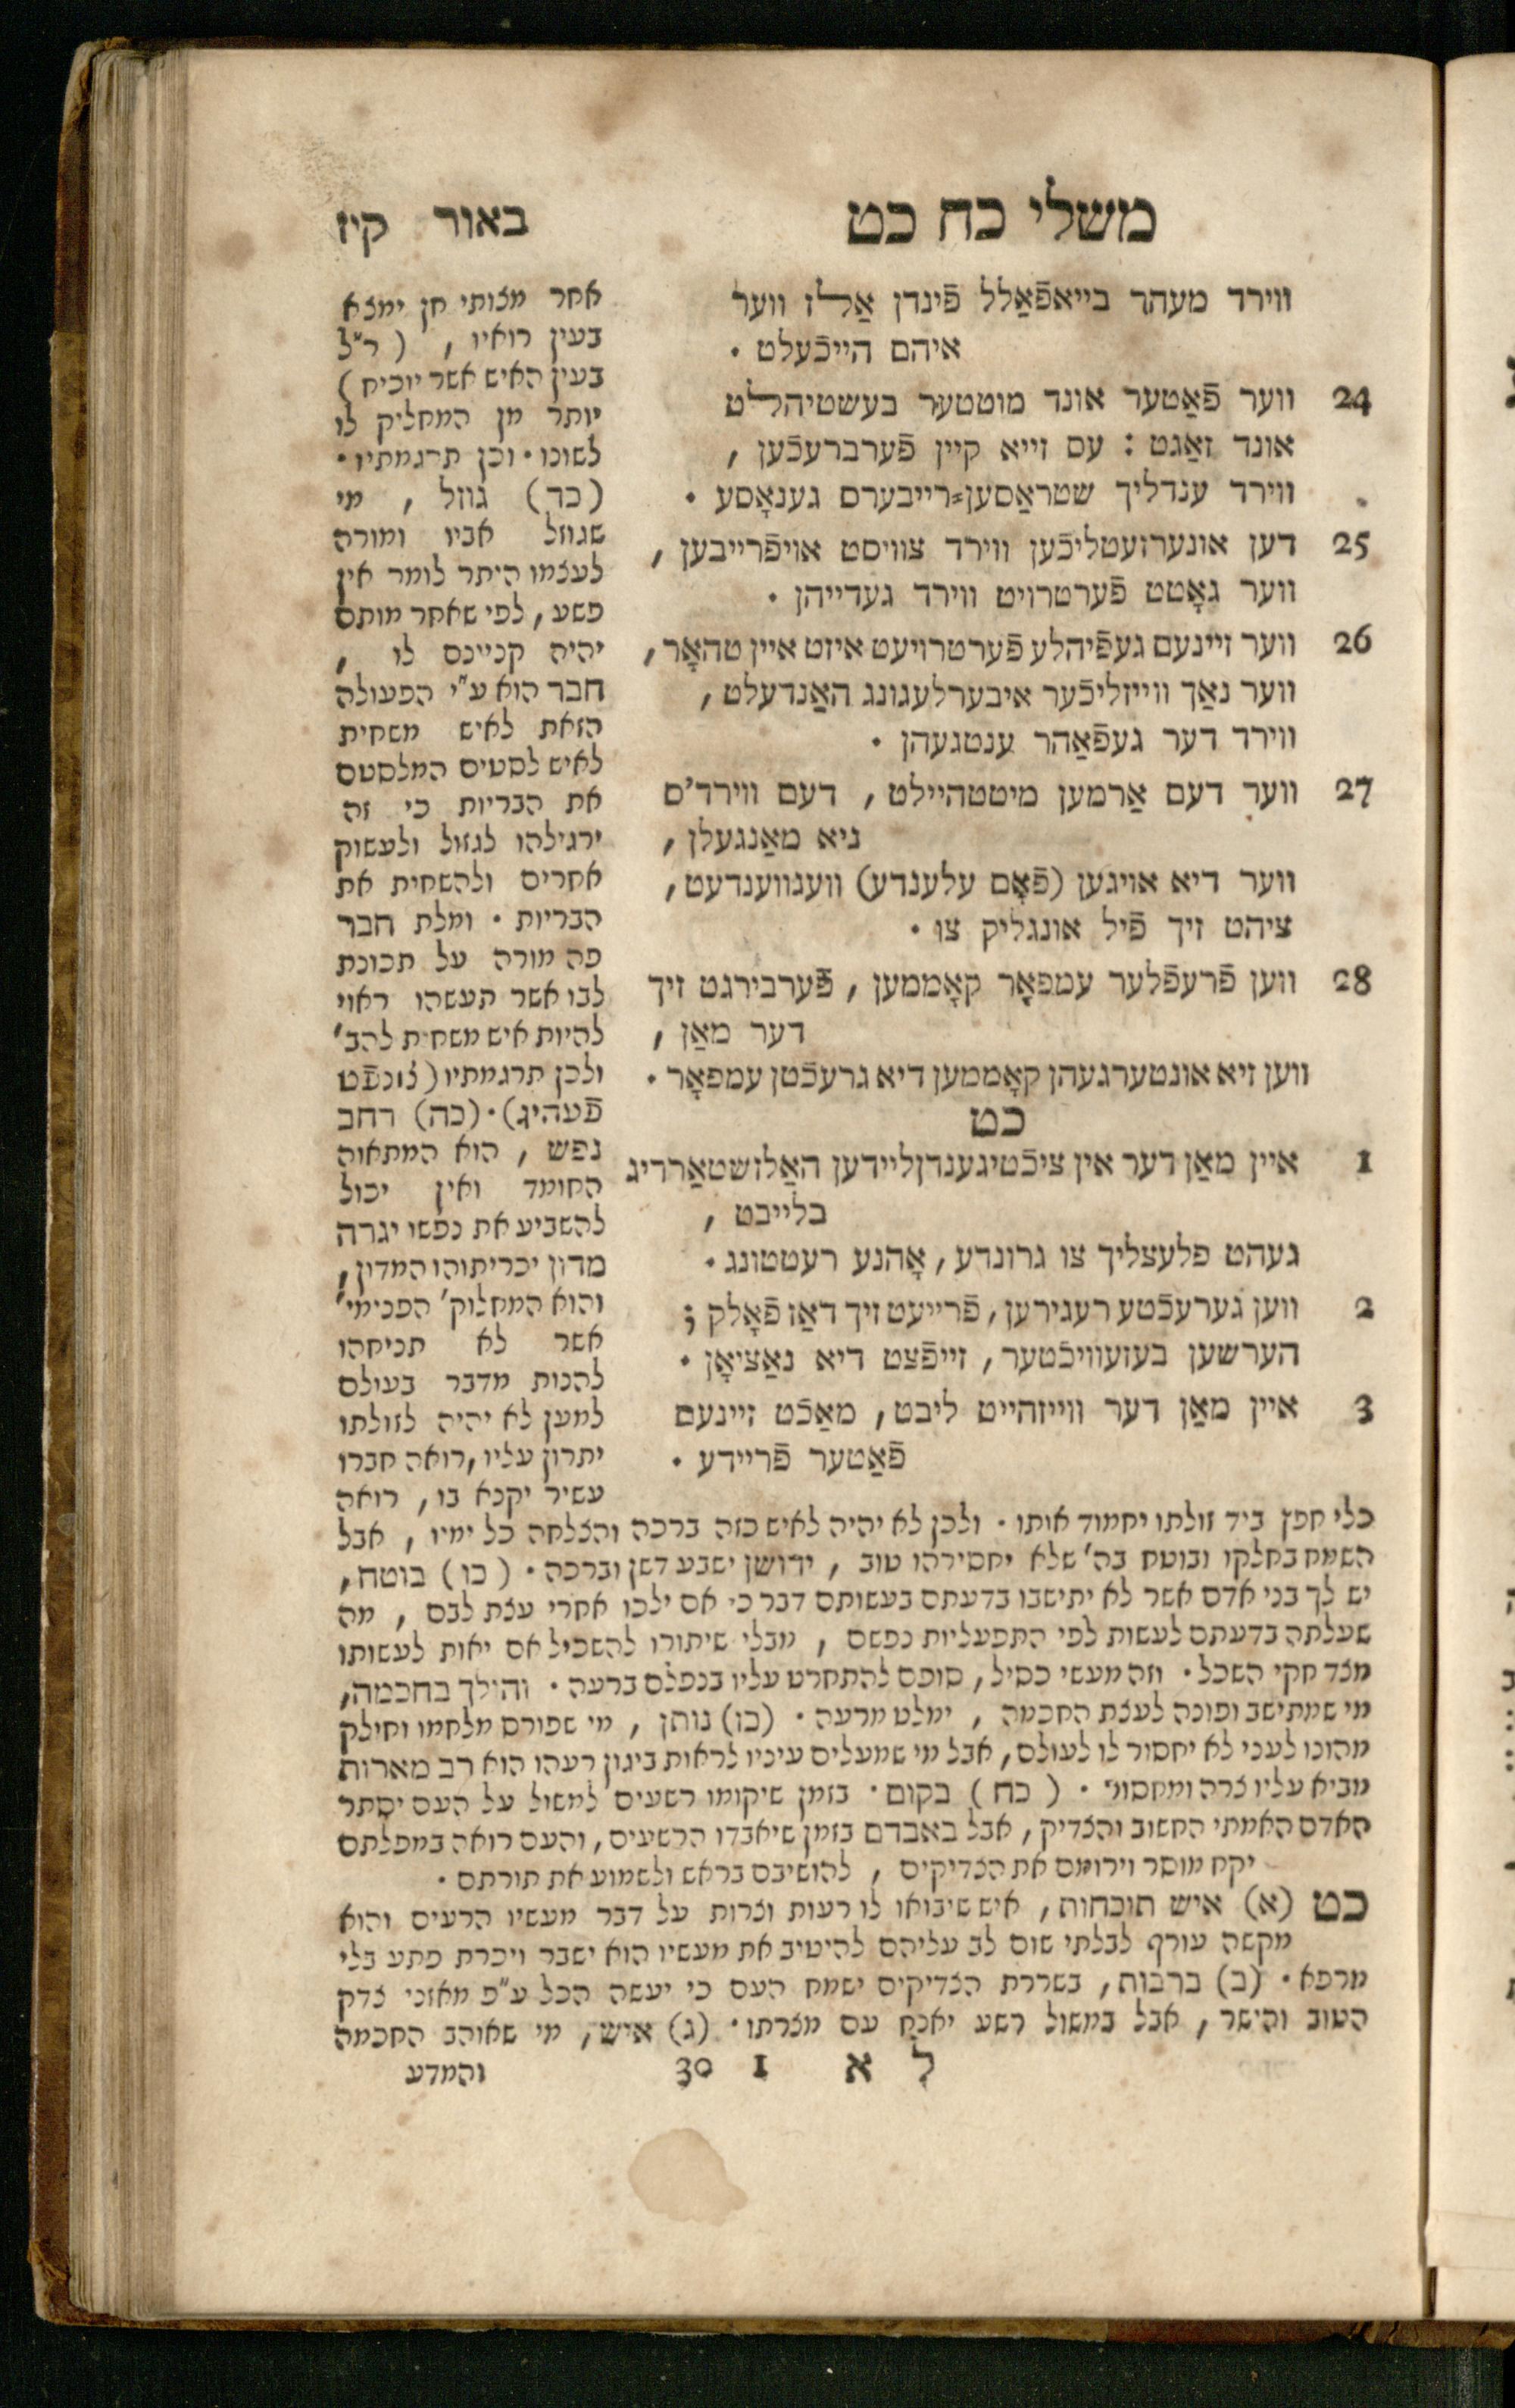 משלי כח כט
באור קיז
ווירד מעהר בייאפֿאַלל פֿינדן אַלז ווער
איהם הייכֿעלט ·
24 ווער פֿאַטער אונד מוטטער בעשטיהלט
אונד זאַגט : עס זייא קיין פֿערברעכֿען ,
ווירד ענדליך שטראַסען=רייבערס גענאָסע ·
25 דען אונערזעטליכֿען ווירד צוויסט אויפֿרייבען ,
ווער גאָטט פֿערטרויט ווירד געדייהן ·
26 ווער זיינעם געפֿיהלע פֿערטרויעט איזט איין טהאָר ,
ווער נאַך ווייזליכֿער איבערלעגונג האַנדעלט ,
ווירד דער געפֿאַהר ענטגעהן ·
27 ווער דעם אַרמען מיטטהיילט , דעם ווירד'ס
ניא מאַנגעלן ,
ווער דיא אויגען (פֿאָם עלענדע) וועגווענדעט ,
ציהט זיך פֿיל אונגליק צו ·
28 ווען פֿרעפֿלער עמפאָר קאָממען , פֿערבירגט זיך
דער מאַן ,
ווען זיא אונטערגעהן קאָממען דיא גרעכֿטן עמפאָר ·
כט
1 איין מאַן דער אין ציכֿטיגענדן ליידען האַלזשטאַרריג
בלייבט ,
געהט פלעצליך צו גרונדע , אָהנע רעטטונג ·
2 ווען גערעכֿטע רעגירען , פֿרייעט זיך דאַז פֿאָלק ;
הערשען בעזעוויכֿטער , זייפֿצט דיא נאַציאָן ·
3 איין מאַן דער ווייזהייט ליבט , מאַכֿט זיינעם
פֿאַטער פֿריידע ·
אחר מצותי חן ימצא
בעין רואיו , (ר"ל
בעין האיש אשר יוכיח)
יותר מן המחליק לו
לשונו · וכן תרגמתיו ·
(כד) גוזל , מי
שגוזל אביו ומורה
לעצמו היתר לומר אין
פשע , לפי שאחר מותם
יהיה קניינם לו ,
חבר הוא ע"י הפעולה
הזאת לאיש משחית
לאיש לסטים המלסטם
את הבריות כי זה
ירגילהו לגזול ולעשוק
אחרים ולהשחית את
הבריות · ומלת חבר
פה מורה על תכונת
לבו אשר תעשהו ראוי
להיות איש משחית להב'
ולכן תרגמתיו (צונפֿט
פֿעהיג) · (כה) רחב
נפש , הוא המתאוה
החומד ואין יכול
להשביע את נפשו יגרה
מדון יכריתוהו המדון ,
והוא המחלוק' הפנימי'
אשר לא תניחהו
להנות מדבר בעולם
למען לא יהיה לזולתו
יתרון עליו , רואה חברו
עשיר יקנא בו , רואה
כלי חפן ביד זולתו יחמוד אותו · ולכן לא יהיה לאיש כזה ברכה והצלחה כל ימיו , אבל
השמח בחלקו ובוטח בה' שלא יחסירהו טוב , ידושן ישבע דשן וברכה · (כו) בוטח ,
יש לך בני אדם אשר לא יתישבו בדעתם בעשותם דבר כי אם ילכו אחרי עצת לבם , מה
שעלתה בדעתם לעשות לפי התפעליות נפשם , מבלי שיתורו להשכיל אם יאות לעשותו
מצד חקי השכל · וזה מעשי כסיל , סופם להתחרט עליו בנפלם ברעה · והולך בחכמה ,
מי שמתישב ופונה לעצת החכמה , ימלט מרעה · (כז) נותן , מי שפורס מלחמו וחילק
מהונו לעני לא יחסור לו לעולם , אבל מי שמעלים עיניו לראות ביגון רעהו הוא רב מארות
מביא עליו צרה ומחסור · (כח) בקום · בזמן שיקומו רשעים למשול על העם יסתר
האדם האמתי החשוב והצדיק , אבל באבדם בזמן שיאבדו הרשעים , והעם רואה במפלתם
יקח מוסר וירומם את הצדיקים , להושיבם בראש ולשמוע את תורתם ·
כט (א) איש תוכחות , איש שיבואו לו רעות וצרות על דבר מעשיו הרעים והוא
מקשה עורף לבלתי שום לב עליהם להיטיב את מעשיו הוא ישבר ויכרת פתע בלי
מרפא · (ב) ברבות , בשררת הצדיקים ישמח העם כי יעשה הכל ע"פ מאזני צדק
הטוב והישר , אבל במשול רשע יאנח עם מצרתו · (ג) איש , מי שאוהב החכמה
ל א 1 30
והמדע